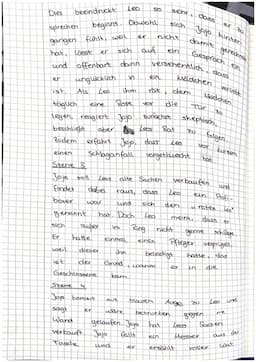 Dies beeindruckt Leo so sehr, dass er zu
sprechen beginnt. Obwohl sich Jojo hinter-
gangen fühlt, weil er nicht damit gerechnet
hat, lässt er sich auf ein Gespräch ein
und offenbart dann versehentlich, dass
er unglücklich in ein Mädchen verliebt
ist. Als Leo ihm rät, dem Mädchen
täglich eine Rose vor die Tür zu
legen, reagiert Jojo zunächst skeptisch,
beschließt aber Leos Rat zu folgen.
Zudem erfährt Jojo, dass Leo vor kurzem
einen Schlaganfall vorgetäuscht hat.
Szene 3
Jojo will Leos alte Sachen verkaufen und
findet dabei raus, dass Leo ein Profi-
boxer war und sich den "roten Leo"
genannt hat. Doch Leo meint, dass er
sich außer im Ring nicht gerne schlage.
Er hatte einmal einen Pfleger verprügelt,
weil dieser ihn beleidigt hatte, das
ist der Grund, warum er in die
Geschlossene kam.
Szene 4
Jojo kommt mit blauem Auge zu Leo und
sagt er wäre betrunken gegen ne
Wand gelaufen. Jojo hat Leos Sachen
verkauft. Jojo fällt ein Messer aus der
Tasche und er erzählt voller Wut